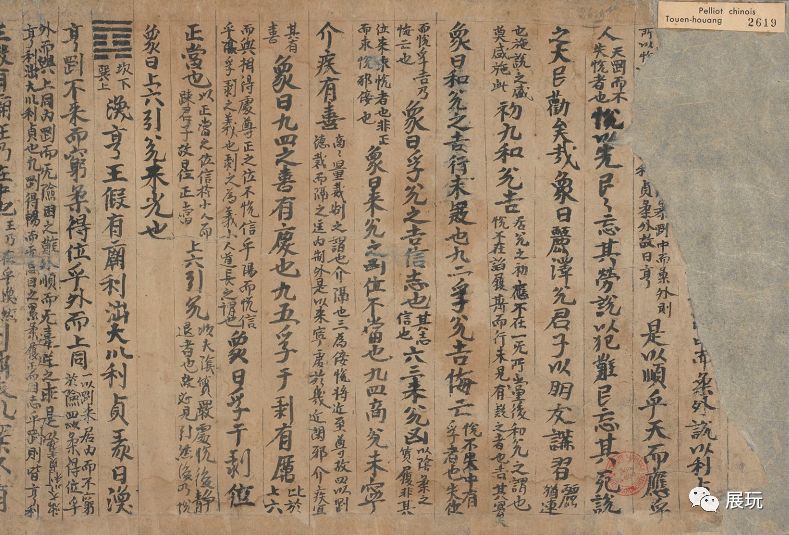 Pelliot chinois
Touen-houang 2619
柔外說以利
利貞柔外故曰亨 剛中而柔外則是以順乎天而應乎
人天剛而不失恱者也恱以先民民忘其勞說以犯難民忘其死說
之大民勸矣哉象曰麗澤兌君子以朋友講習麗猶連
也施說之盛莫盛施此初九和兌吉居兌之初應不在一无所黨係和兌之謂也恱不在諂履斯而行未見有疑之者也吉其宜矣
象曰和兌之吉行未疑也九二孚兌吉悔亡恱不失中有孚者也失位
而恱孚吉乃悔亡也象曰孚兌之吉信志也其志信也六三来兌凶以陰柔之質履非其
位来求恱者也非正而求恱邪佞也象曰来兌之凶位不當也九四商兌未寧
介疾有善商商量裁制之謂也介隔也三為佞恱將近至尊故四以剛德裁而隔之匡內制外是以未寧處於幾近閑邪介疾宜
其有善象曰九四之善有慶也九五孚于剥有厲比於上六
而與相得處尊正之位不恱信乎陽而恱信乎陰孚剥之義也剥之為義小人道長之謂也象曰孚于剥位
正當也以正當之位信於小人而踈君子故曰位正當上六引兌以夫陰質最處恱後静退者也故必見引然後乃恱
象曰上六引兌未光也
坎下巽上渙亨王假有廟利涉大川利貞彖曰渙
亨剛不来而窮柔得位乎外而上同二以剛来居內而不窮於險四以柔得位乎
外而與上同內剛而无險困之難外順而无違逆之乖是以亨利涉大川利貞也凡剛得暢而无忌回之累柔履正而同志乎剛則皆亨利
王假有廟王乃在中也王乃在乎渙然
展玩